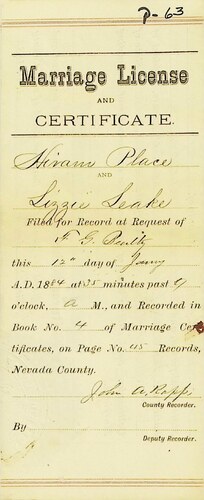 P-63
Marriage License
AND
CERTIFICATE.
Hiram Place
AND
Lizzie Leake
Filed for Record at Request of
F. G. Beatty
this 12" day of Jany
A.D. 1884 at 35 minutes past 9
o'clock, a M., and Recorded in
Book No. 4 of Marriage Cer
tificates, on Page No. 45 Records,
Nevada County.
John A. Rapp
County Recorder.
By
Deputy Recorder.